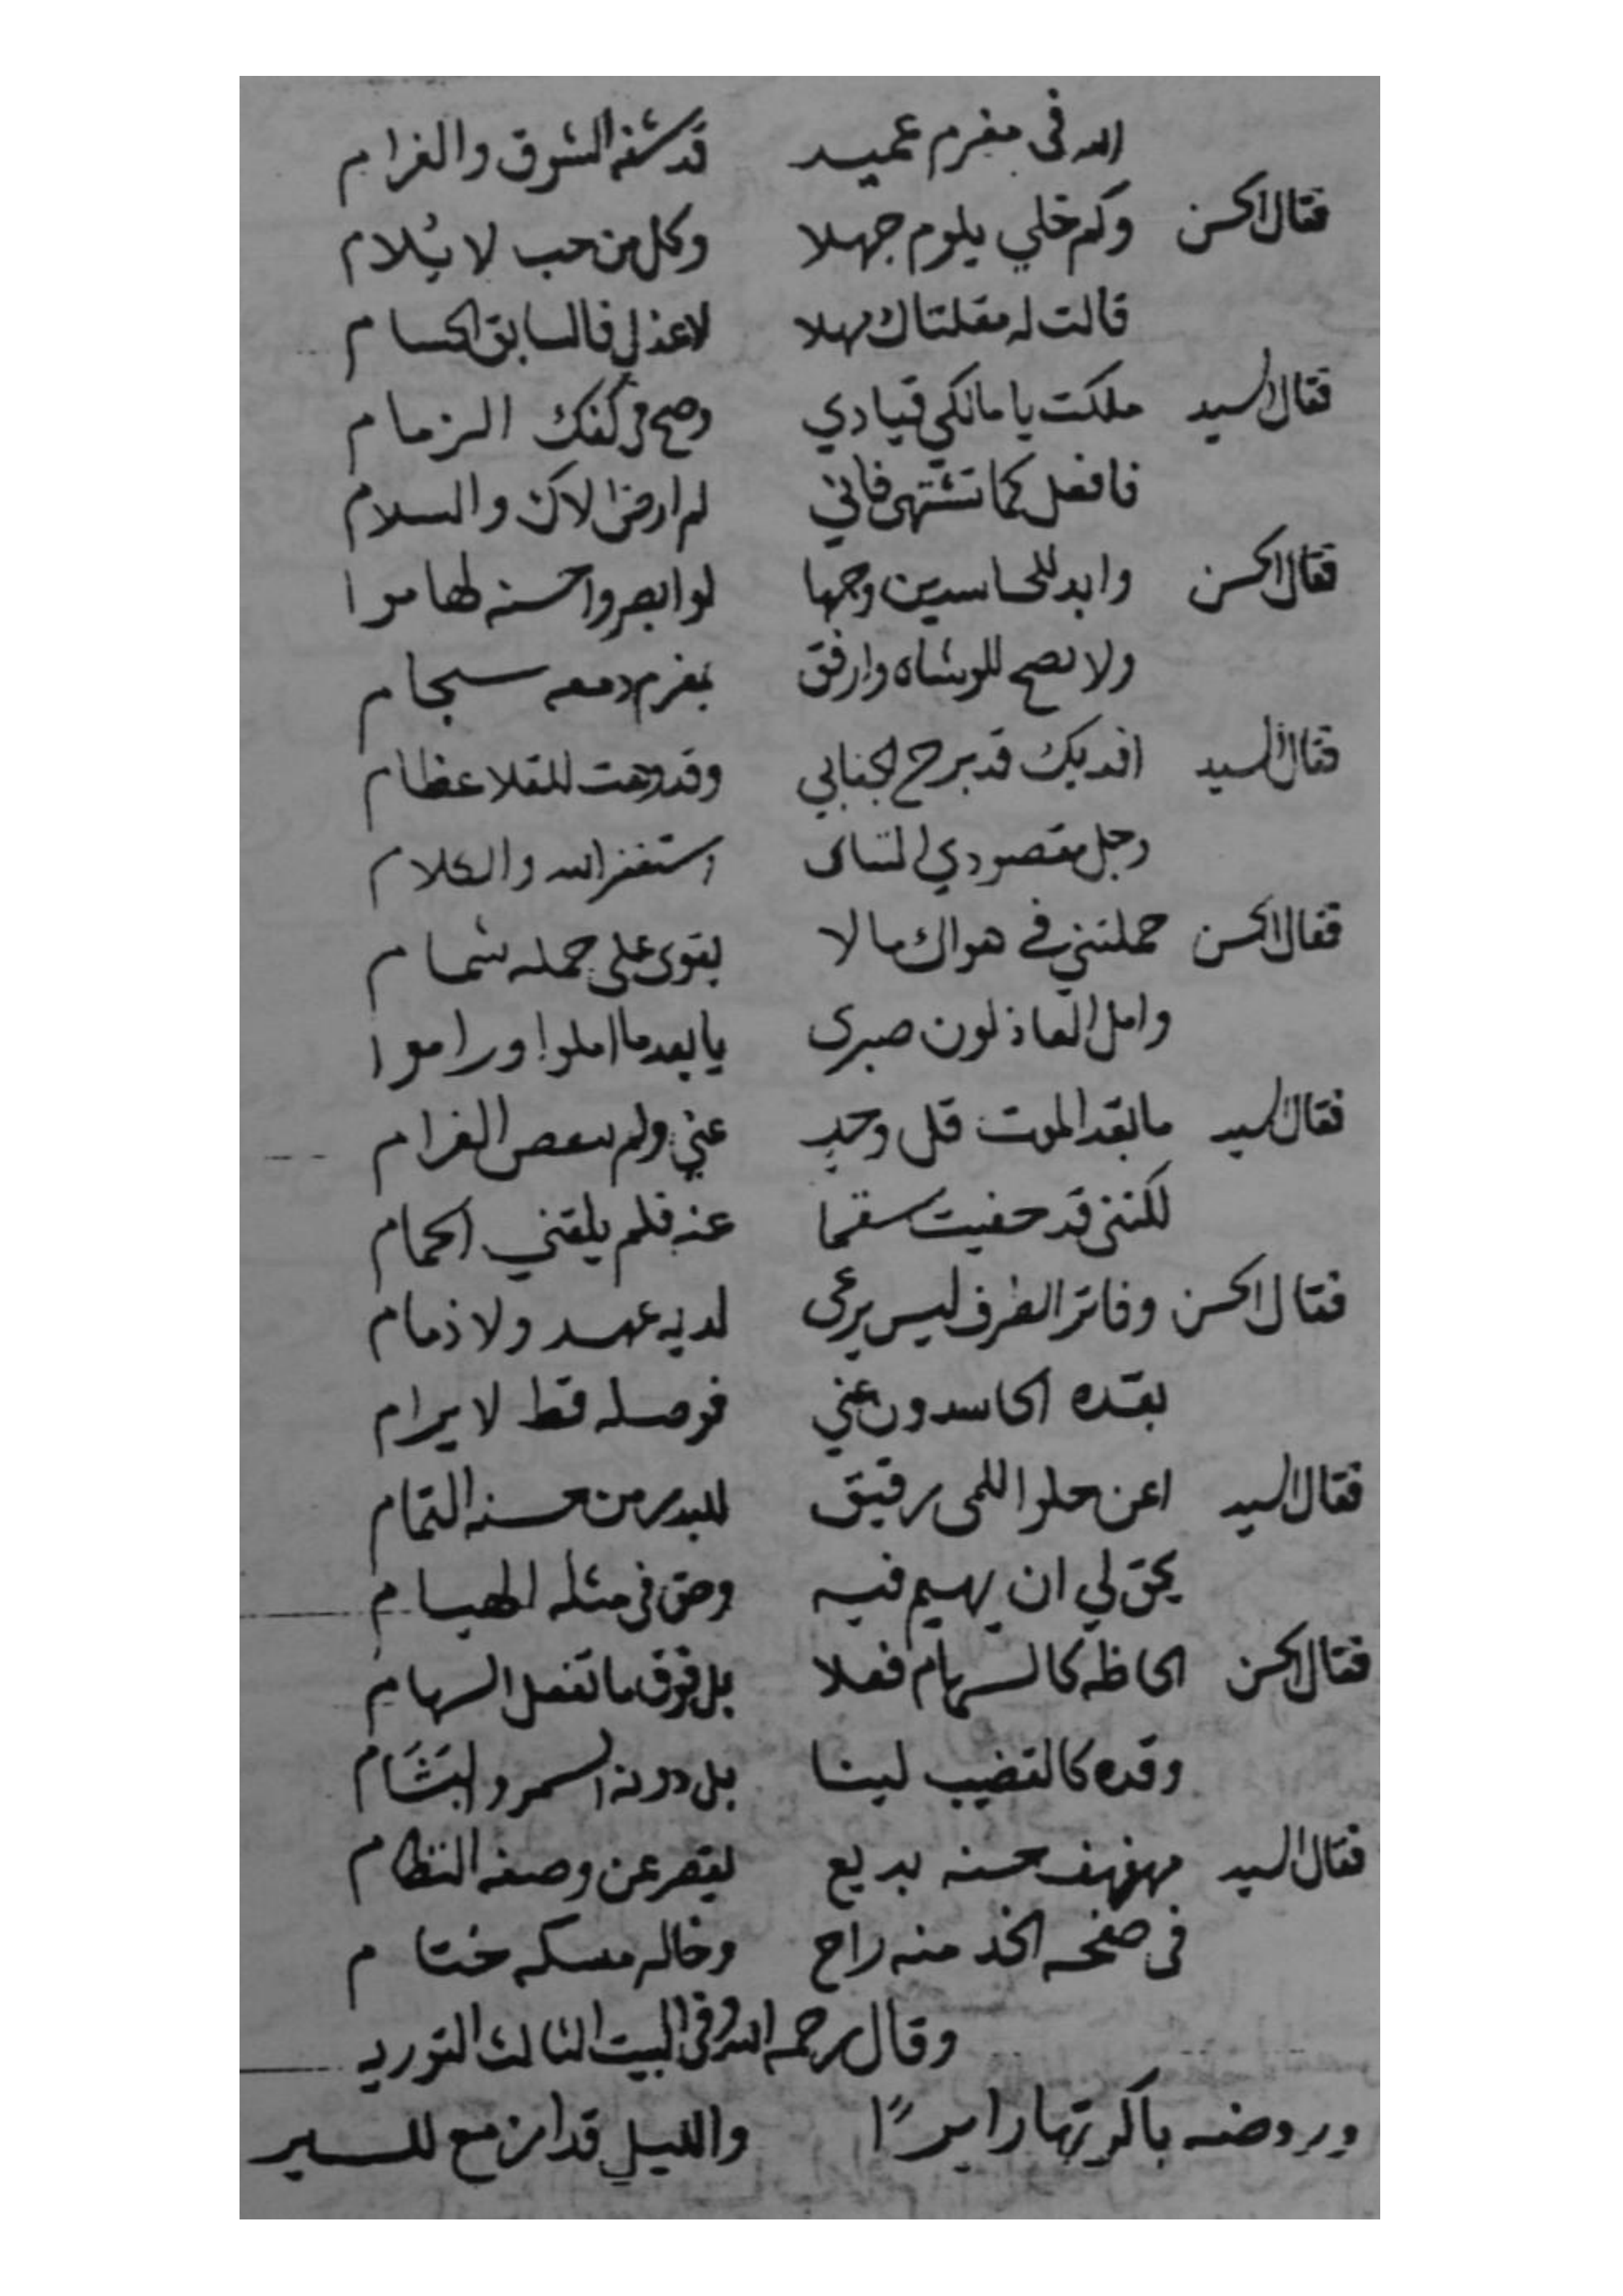 الله في مغرم عميد قد شفه الشوق والغرام
فقال الحسن وكم خلي يلوم جهلا وكل من حب لا يُلام
قالت له مقلتاك مهلا لا عذل فالسابق الحسام
فقال السيد ملكت يا مالكي قيادي وصح في كفك الزمام
فافعل كما تشتهي فاني لم ارض الاك والسلام
فقال الحسن وابد للحاسدين وجها لو ابصروا حسنه لهاموا
ولا تصح للوشاه وارفق بمغرم دمعه سجام
فقال السيد افديك قد برح بي وقد وهت للقلا عظام
وجل مقصودي استغفر الله والكلام
فقال الحسن حملتني في هواك ما لا يقوى على حمله شمام
وامل العاذلون صبري يا بعد ما املوا وراموا
فقال السيد ما بعد الموت قل وحد عني ولم الغرام
لكنني قد خفيت سقما عنه فلم يلقني الحمام
فقال الحسن وفاتر الطرف ليس يرعى لديه عهد ولا ذمام
بقده الحاسدون عني فوصله قط لا يرام
فقال السيد اغن حلو اللمى رقيق للبدر من حسنه التمام
يحق لي ان يهيم فيه وحق في مثله الهيام
فقال الحسن الحاظه كالسهام فعلا بل فوق ما تفعل السهام
وقده كالقضيب لينا بل دونه السمر والبَشَام
فقال السيد مهفهف حسنه بديع يقصر عن وصفه النظام
في صفحه الخد منه راح وخاله مسكه ختام
وقال رحمه الله وفي البيت الثالث التوريه
وروضه باكرتها زايرًا والليل قد ازمع للسير